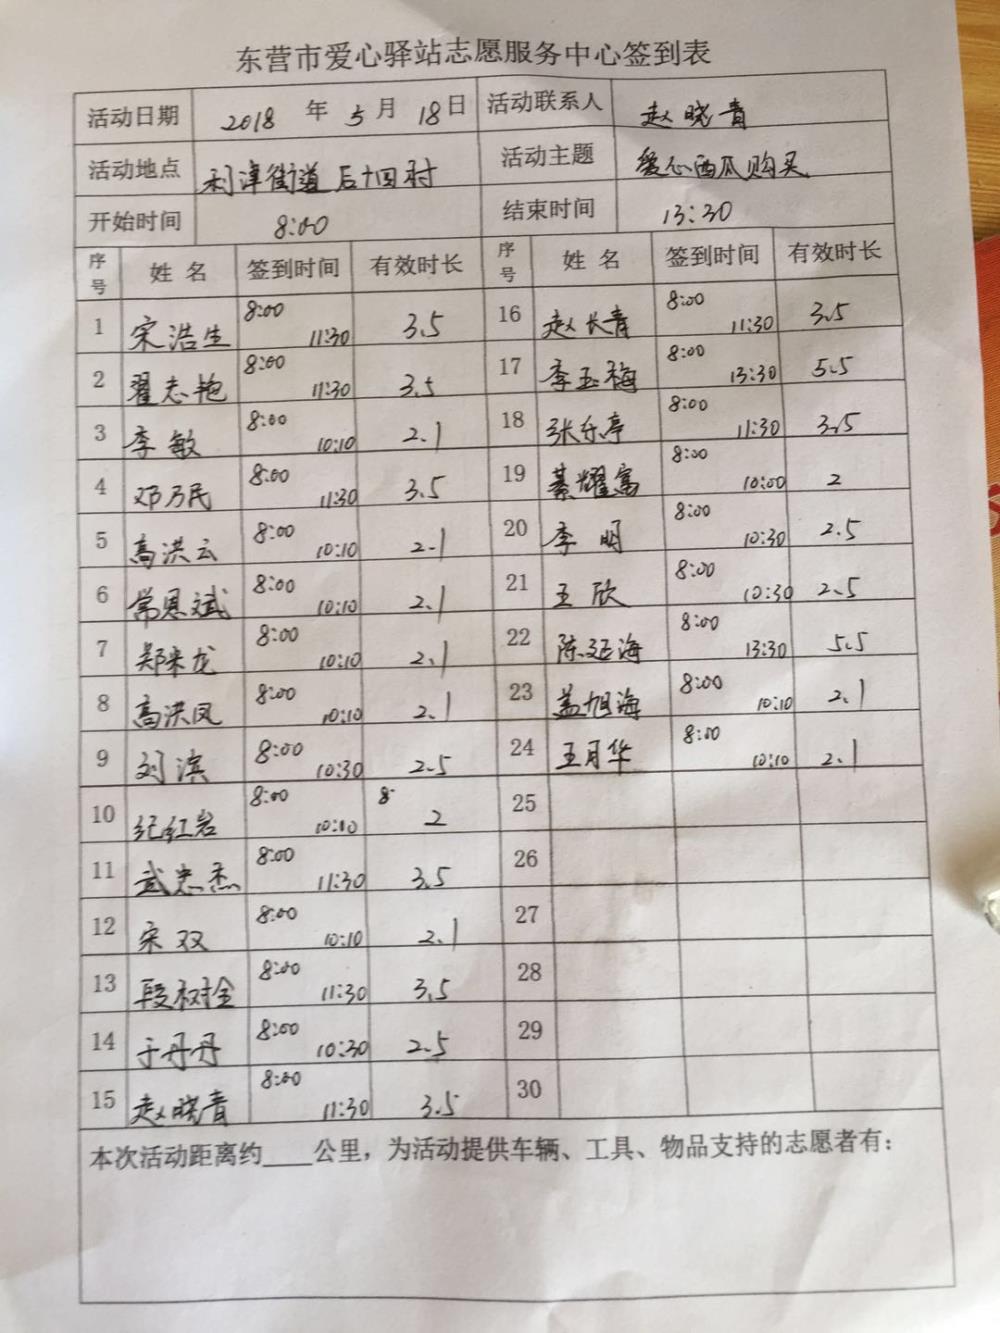 东营市爱心驿站志愿服务中心签到表
活动日期 2018 年 5 月 18 日 活动联系人 赵晓青
活动地点 利津街道后十四村 活动主题 爱心西瓜购买
开始时间 8:00 结束时间 13:30
序号 姓名 签到时间 有效时长 序号 姓名 签到时间 有效时长
1 宋浩生 8:00 11:30 3.5 16 赵长青 8:00 11:30 3.5
2 翟志艳 8:00 11:30 3.5 17 李玉梅 8:00 13:30 5.5
3 李敏 8:00 10:10 2.1 18 张乐亭 8:00 11:30 3.5
4 邓乃民 8:00 11:30 3.5 19 綦耀富 8:00 10:00 2
5 高洪云 8:00 10:10 2.1 20 李明 8:00 10:30 2.5
6 常恩斌 8:00 10:10 2.1 21 王欣 8:00 10:30 2.5
7 郑来龙 8:00 10:10 2.1 22 陈延海 8:00 13:30 5.5
8 高洪凤 8:00 10:10 2.1 23 盖旭海 8:00 10:10 2.1
9 刘滨 8:00 10:30 2.5 24 王月华 8:00 10:10 2.1
10 纪红岩 8:00 10:10 8 2 25
11 武忠杰 8:00 11:30 3.5 26
12 宋双 8:00 10:10 2.1 27
13 段树全 8:00 11:30 3.5 28
14 于丹丹 8:00 10:30 2.5 29
15 赵晓青 8:00 11:30 3.5 30
本次活动距离约____公里，为活动提供车辆、工具、物品支持的志愿者有：